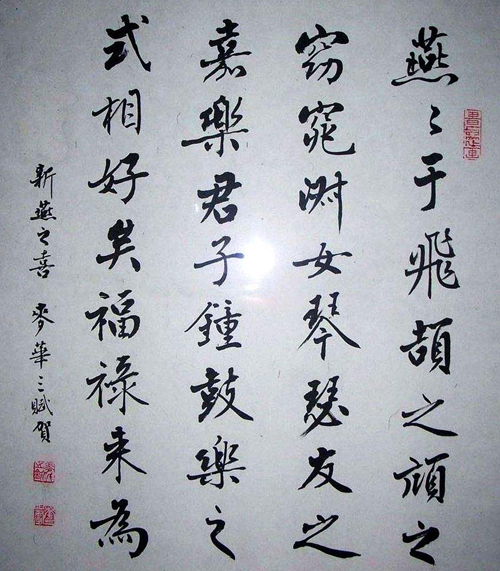 燕々于飛頡之頏之
窈窕淑女琴瑟友之
嘉樂君子鍾鼓樂之
式相好矣福祿来為
新燕之喜 麥華三賦賀